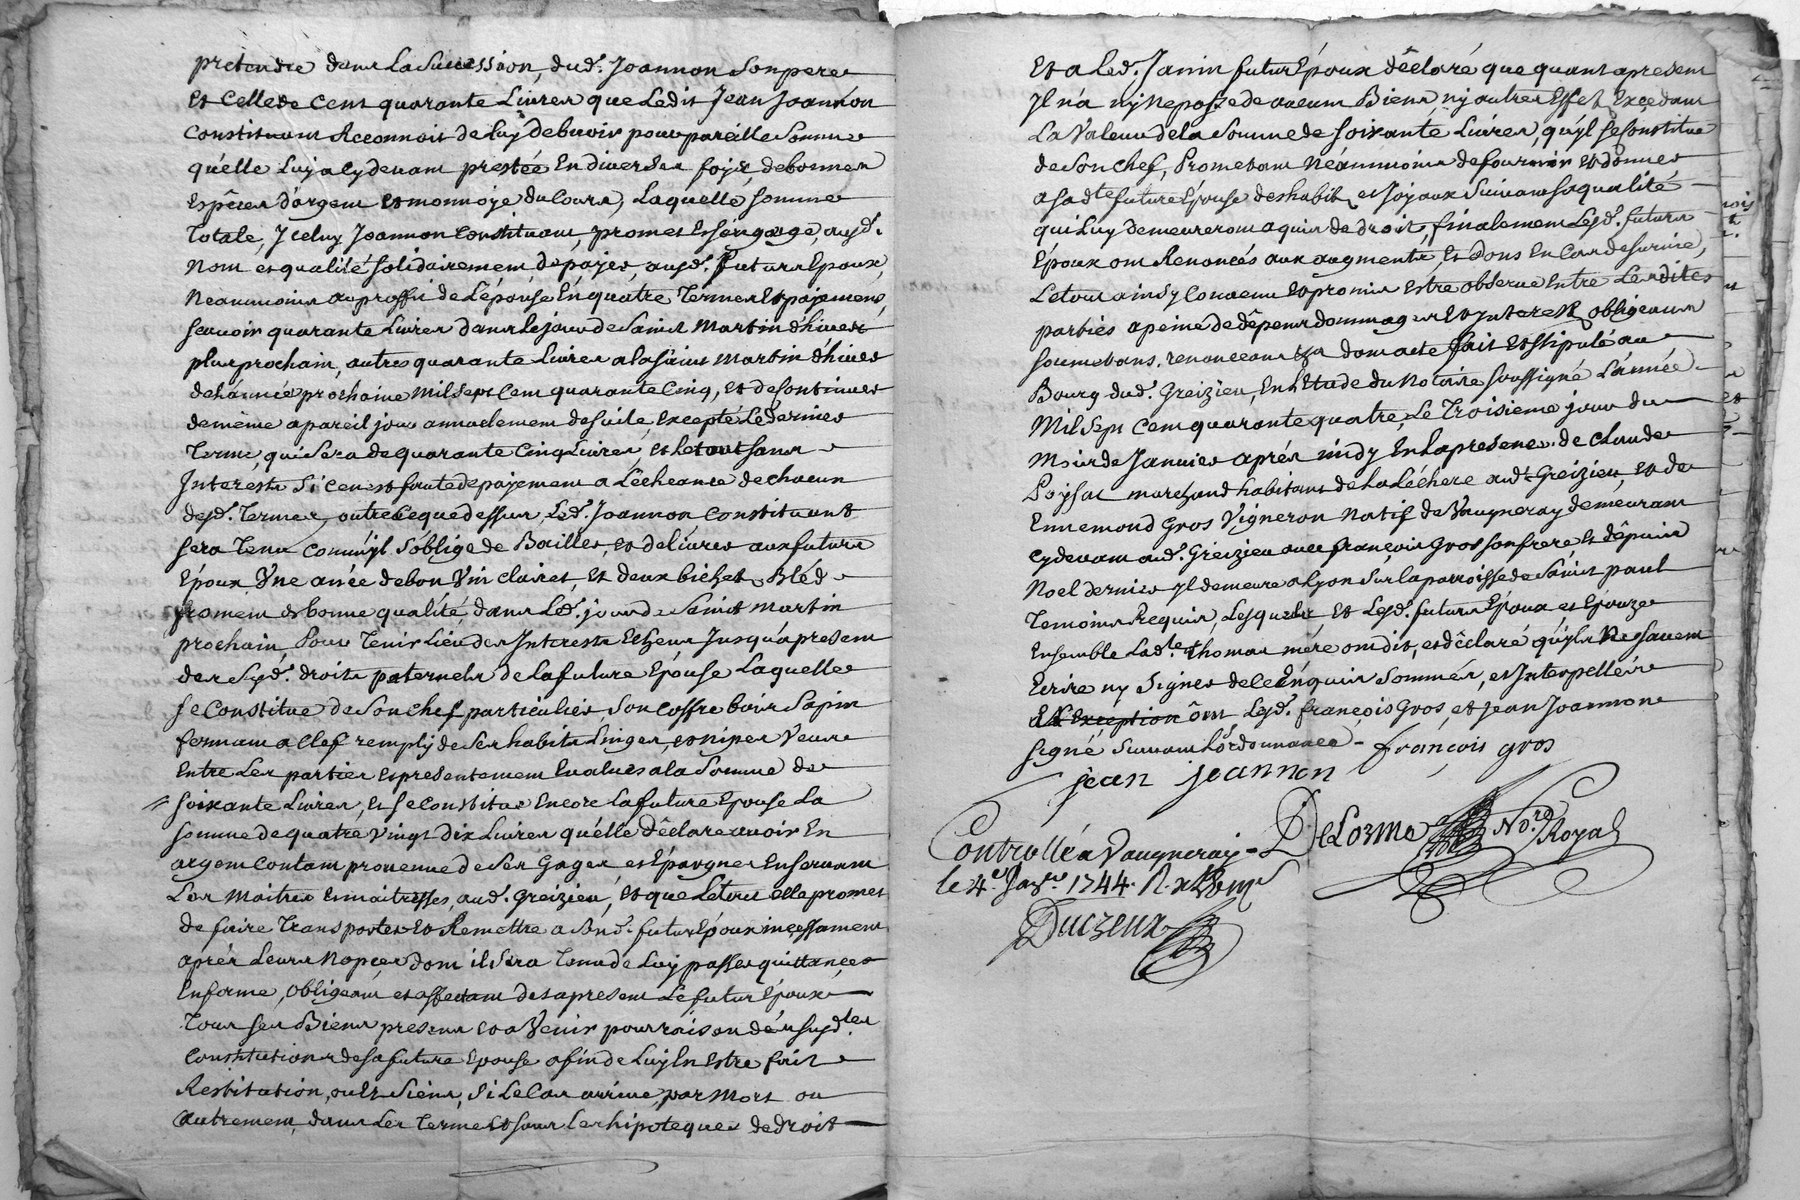 pretendre dans La Succession, dud. Joannon Son pere
Et Celle de Cent quarante Livres que Ledit Jean Joannon
Constituant Reconnoit de Luy debvoir pour pareille Somme
qu'elle Luy a Cydevant prestée En diverses foys, de bonnes
Espêces d'argent et monnoye du Cours, Laquelle somme
Totale, Jceluy Joannon Constituant, promet Et s'engage, ausd.
Nom et qualité solidairement, de payer, ausd. futurs Epoux,
Neanmoins au proffit de L'épouse En quatre Termes Et payements,
scavoir quarante Livres dans Le jour de Saint Martin d'hiver
plus prochain, autres quarante Livres a la saint Martin d'hiver
de L'année prochaine Mil Sept Cent quarante Cinq, Et de Continuer
de même a pareil jour annuelement de suite, Excepté Le dernier
Terme, qui Sera de quarante Cinq Livres, et Le tout sans
Interests Si Ce n'est faute de payement a L'écheance de chacun
desd. Termes, outre Ce que dessus, Led. Joannon Constituant
sera Tenu Comm'jl s'oblige de Bailler, et delivrer aux futurs
Epoux Vne anée de bon Vin Clairet, Et deux bichets Bléd
froment de bonne qualité, dans Led. jour de Saint Martin
prochain, Pour Tenir Lieu des Interests Echeus Jusqu'a present
des Susd. droits paternels de La future Epouse Laquelle
se Constitue de Son Chef particulier Son Coffre bois Sapin
fermant a Clef remply de Ses habits Linges, et nipes Veus
Entre Les parties et presentement Evalués a la Somme de
soixante Livres, Et se Constitue Encore La future Epouse La
somme de quatre Vingt Dix Livres qu'elle déclare avoir En
argent Contant provenue de Ses Gages, et Epargnes En servant
Les Maitres Et maitresses, aud. Greizieu, Et que Le tout elle promet
de faire Transporter Et Remettre a Sond. futur Epoux incessament
après Leurs Nopces dont il Sera Tenu de Luy passer quittances
En forme, obligeant et affectant des a present Le futur Epoux
Tous ses Biens presens et a Venir pour raison des susd.tes
Constitutions de sa future Epouse afin de Luy En Estre fait
Restitution, ou Es Siens, Si Le Cas arrive, par Mort ou
autrement, dans Les Termes et sous Les hipoteques de droit
Et a Led. Janin futur Epoux déclaré que quant a present
Jl n'a ny Ne possede aucuns Biens, ny autres Effets Excedant
La Valeur de la Somme de soixante Livres, qu'yl se Constitue
de Son Chef, Prometant Néanmoins de fournir et donner
a sad.te future Epouse des habits, et Joyaux Suivant sa qualité
qui Luy demeureront acquis de droit, finalement Lesd. futurs
Epoux ont Renoncés aux augments, Et dons En Cas de survie,
Le tout ainsy Convenu et promis Estre observé Entre Lesdites
parties a peine de dêpens dommages et Jnterests, obligeant
soumetans, renonceant &a dont acte fait et stipulé au
Bourg dud. Greizieu, En L'Etude du Notaire soussigné L'année
Mil Sept Cent quarante quatre, Le Troisieme jour du
Mois de Janvier après midy En La presence de Claude
Poysat marchand habitant de La Léchere aud. Greizieu, et de
Ennemond Gros Vigneron Natif de Vaugneray demeurant
cydevant aud. Greizieu avec françois Gros son frere Et dêpuis
Noel dernier jl demeure a Lyon Sur la parroisse de Saint paul
Temoins Requis, Lesquels, Et Lesd. futurs Epoux et Epouze
Ensemble Lad.te Thomas mére ont dit, et déclaré qu'yls Ne sauent
Ecrire ny Signer de ce Enquis Sommés, et Interpellés
Et Exception ônt Lesd. françois Gros, et Jean Joannon
signé Suivant L'ordonnance - françois gros
jean jeannon
DeLorme No.re Royal
Controllé a Vaugneray
le 4.e Jan.er 1744. R.
Duczeux